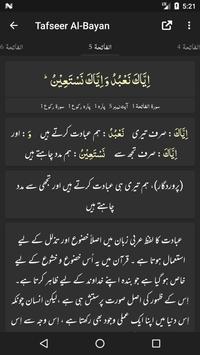 5:21
Tafseer Al-Bayan
الفاتحة 4
الفاتحة 5
الفاتحة 6
اِیَّاکَ نَعۡبُدُ وَ اِیَّاکَ نَسۡتَعِیۡنُ ؕ
اِیَّاکَ: صرف تیری نَعۡبُدُ: ہم عبادت کرتے ہیں وَ: اور
اِیَّاکَ: صرف تجھ سے نَسۡتَعِیۡنُ: ہم مدد چاہتے
ہیں
(پروردگار)، ہم تیری ہی عبادت کرتے ہیں اور تجھی سے مدد
چاہتے ہیں
عبادت کا لفظ عربی زبان میں اصلاً خضوع اور تذلل کے لیے
استعمال ہوتا ہے۔ قرآن میں یہ اُس خضوع و خشوع کے لیے
خاص ہو گیا ہے جو بندہ اپنے خداوند کے لیے ظاہر کرتا ہے۔
اِس خضوع کی اصل صورت پرستش ہی ہے، لیکن انسان چونکہ
اِس دنیا میں اپنا ایک عملی وجود بھی رکھتا ہے، اِس وجہ سے اِس